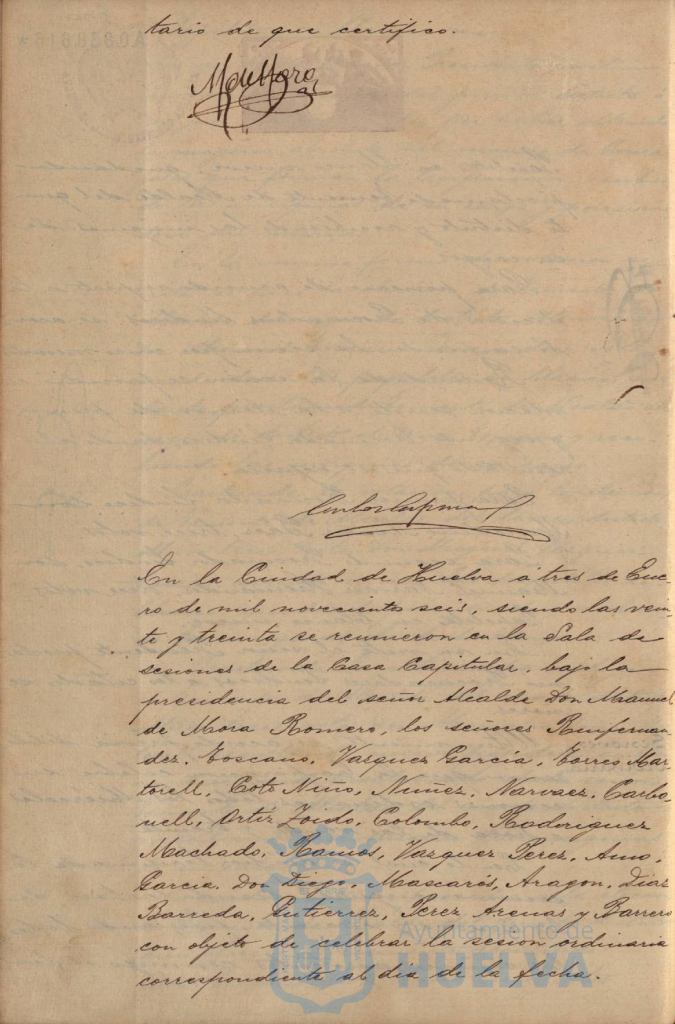 tario de que certifico.
En la Ciudad de Huelva á tres de Ene-
ro de mil novecientos seis, siendo las vein-
te y treinta se reunieron en la Sala de
sesiones de la Casa Capitular, bajo la
presidencia del señor Alcalde Don Manuel
de Mora Romero, los señores
Toscano, Vazquez García, Torres Mar-
torell, Coto Niño, Nuñez, Narvaez, Carbo-
nell, Ortiz Zoido, Colombo, Rodriguez
Machado, Ramos, Vazquez Perez, Amo,
Garcia Don Diego, Mascarós, Aragon, Diaz
Barreda, Gutierrez, Perez Arenas y Barrero
con objeto de celebrar la sesion ordinaria
correspondiente al dia de la fecha.
Ayuntamiento de
HUELVA